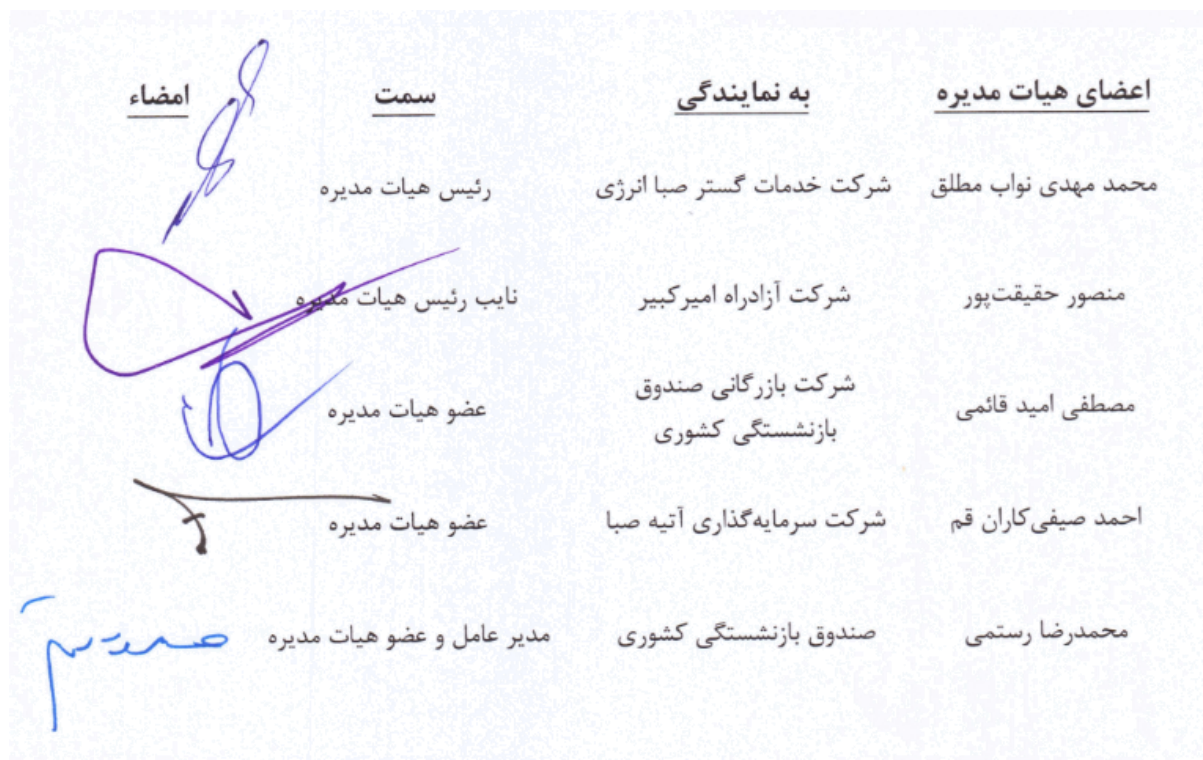 اعضای هیات مدیره به نمایندگی سمت امضاء
محمد مهدی نواب مطلق شرکت خدمات گستر صبا انرژی رئیس هیات مدیره
منصور حقیقت‌پور شرکت آزادراه امیرکبیر نایب رئیس هیات مدیره
مصطفی امید قائمی شرکت بازرگانی صندوق بازنشستگی کشوری عضو هیات مدیره
احمد صیفی‌کاران قم شرکت سرمایه‌گذاری آتیه صبا عضو هیات مدیره
محمدرضا رستمی صندوق بازنشستگی کشوری مدیر عامل و عضو هیات مدیره